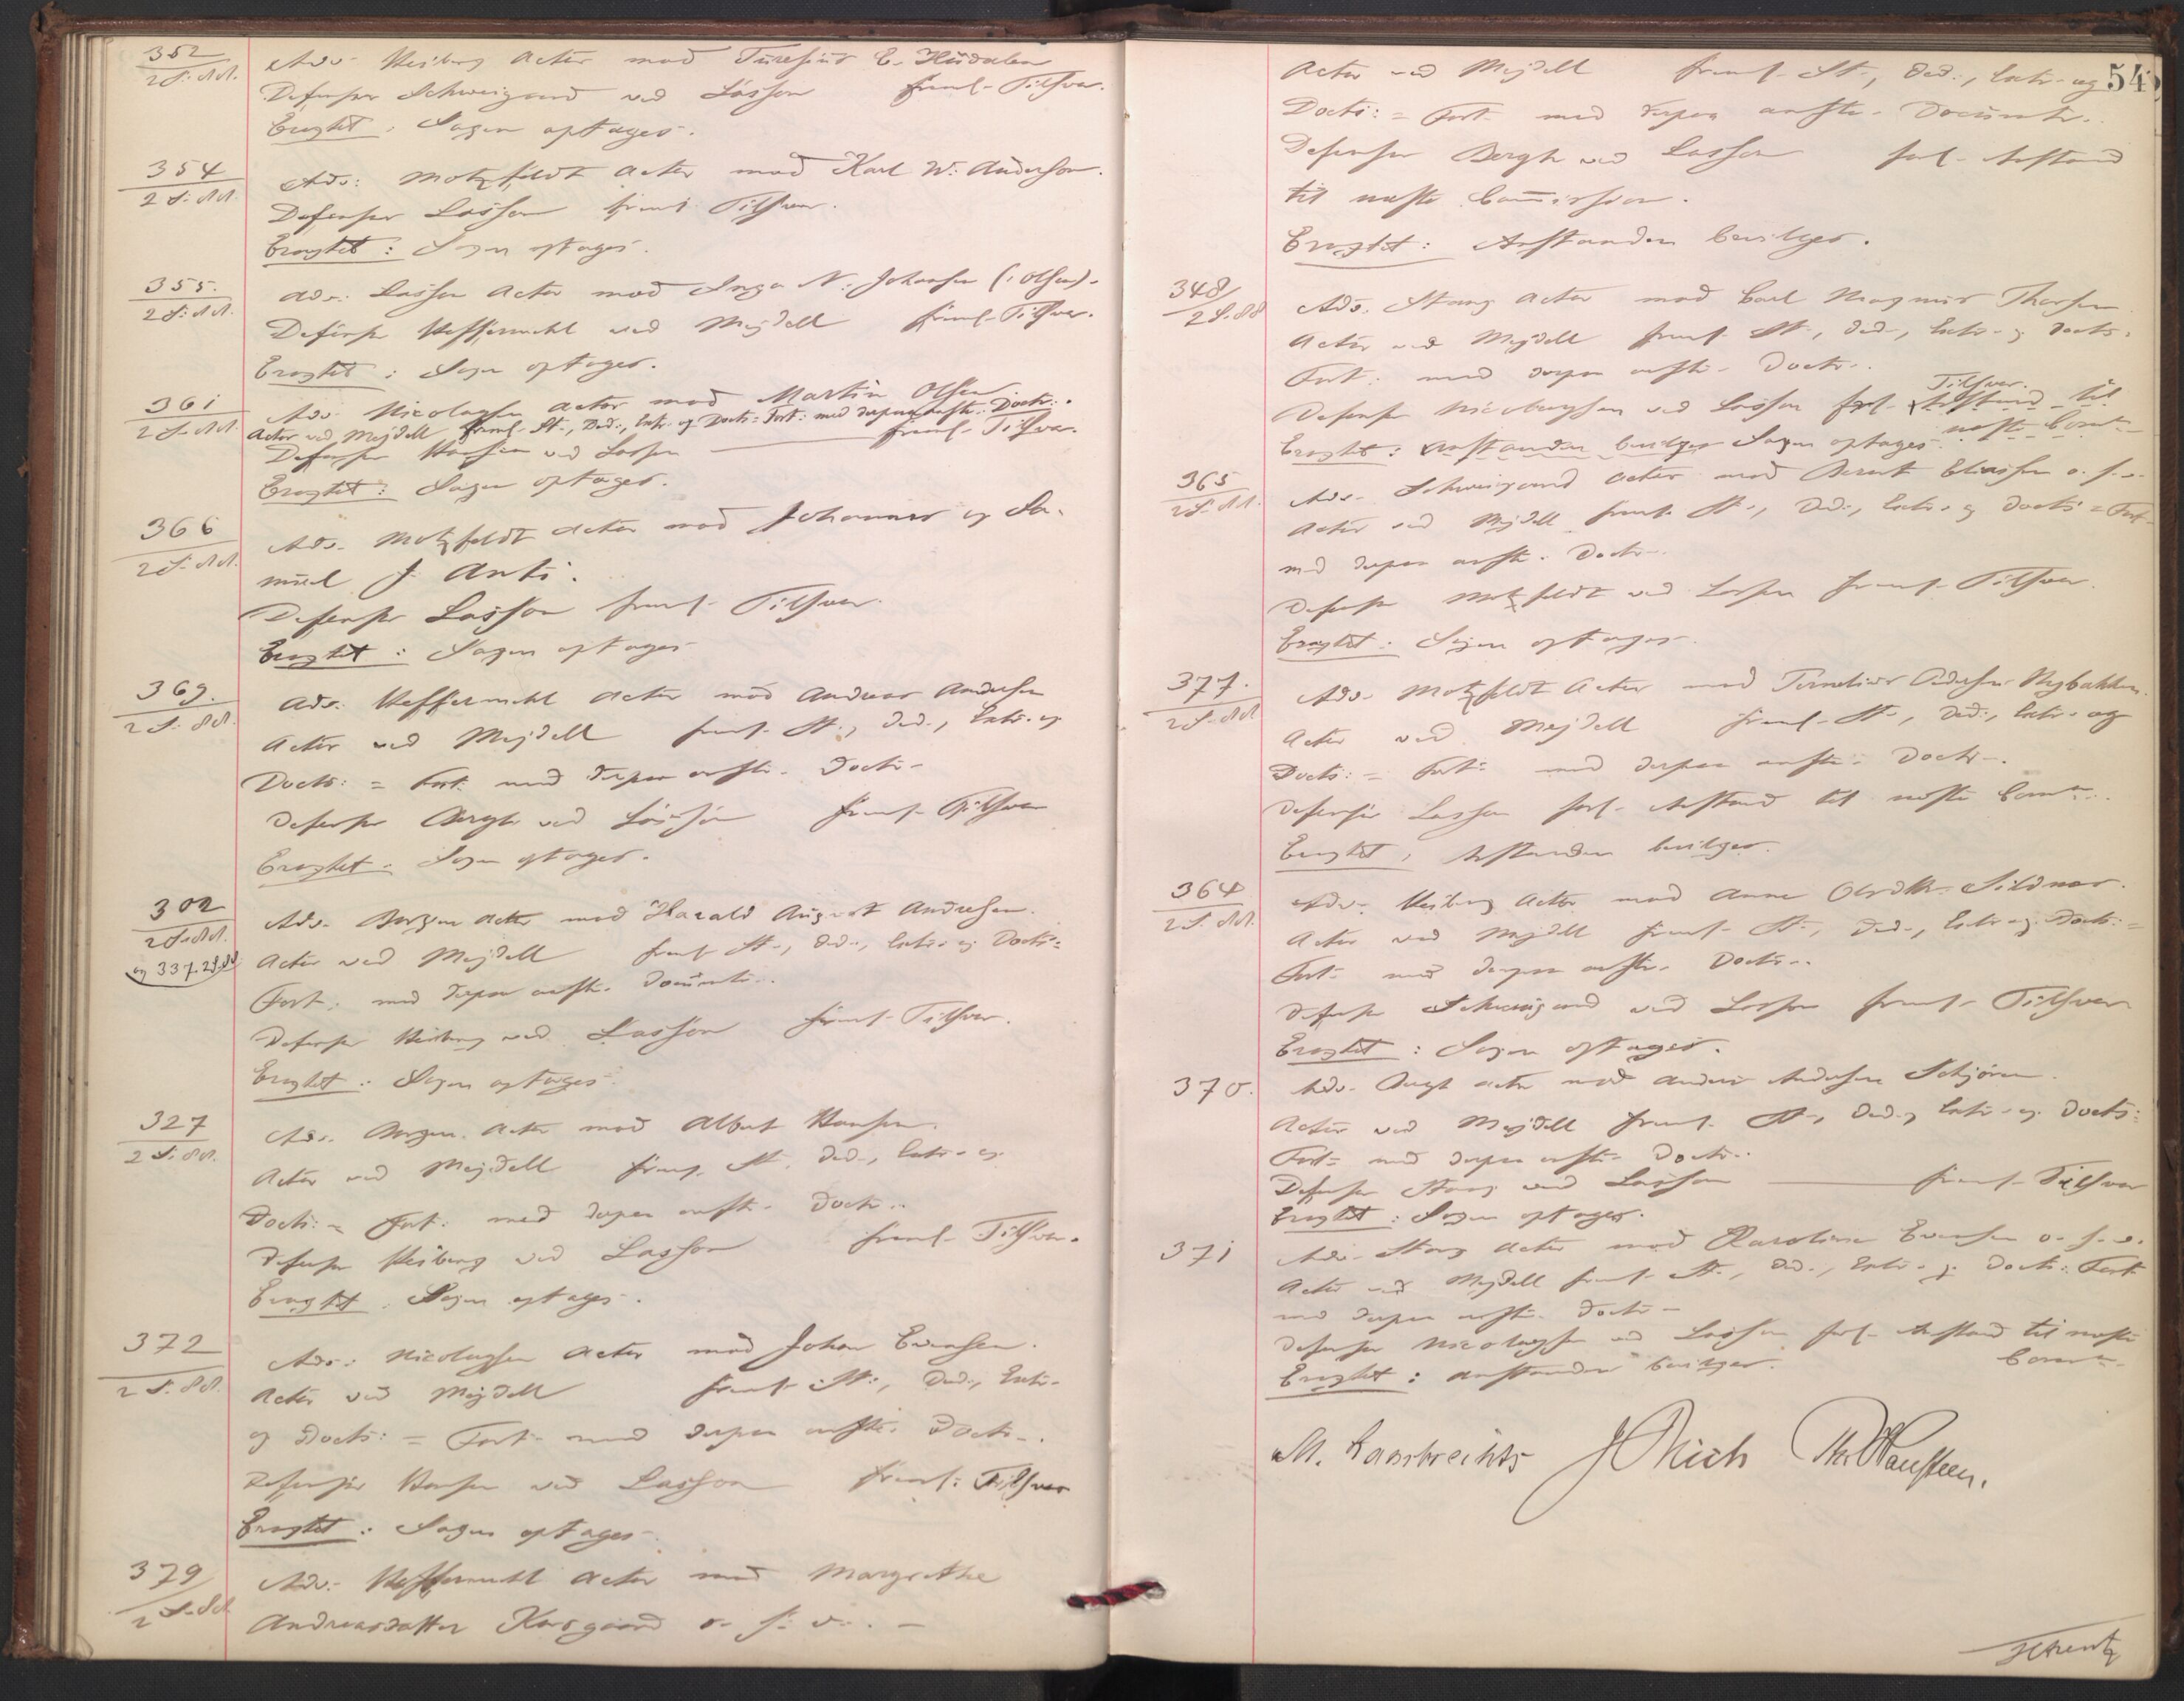 352
2 S. 88.
Adv. Heiberg Actor mod E.
Defensor Schweigaard ved Lasson freml. Tilsvar.
Eragtet: Sagen optages.
354
2 S. 88.
Adv: Motzfeldt Actor mod Karl W. Anderson.
Defensor Lasson freml. Tilsvar.
Eragtet: Sagen optages.
355.
2 S. 88.
Adv. Lasson Actor mod Inga N. Johansen (: Olsen).
Defensor Heffermehl ved Mejdell freml. Tilsvar.
Eragtet: Sagen optages.
361
2 S. 88.
Adv. Nicolaysen Actor mod Martin Olsen
Actor ved Mejdell freml. St., Ded., Extr. og Docts: Fort: med derpaa anfte. Doctr.
Defensor Hansen ved Lasson — freml. Tilsvar.
Eragtet: Sagen optages.
366
2 S. 88.
Adv. Motzfeldt Actor mod Johannes og Sa-
muel J. Anti.
Defensor Lasson freml. Tilsvar.
Eragtet: Sagen optages
369.
2 S. 88.
Adv. Heffermehl Actor mod Andreas Andersen
Actor ved Mejdell freml. St., Ded., Extr. og
Docts: = Fort. med derpaa anfte. Doctr.
Defensor Bergh ved Lasson freml. Tilsvar
Eragtet: Sagen optages.
302
2 S. 88.
og 337. 2 S. 88
Adv. Borgen Actor mod Harald August Andresen.
Actor ved Mejdell freml. St., Ded., Extr. og Docts:=
Fort. med derpaa anfte. Documtr.
Defensor Heiberg ved Lasson freml. Tilsvar.
Eragtet: Sagen optages.
327
2 S. 88.
Adv. Borgen Actor mod Albert Hansen.
Actor ved Mejdell freml. St., Ded., Extr. og
Docts: = Fort. med derpaa anfte. Doctr.
Defensor Heiberg ved Lasson freml. Tilsvar.
Eragtet: Sagen optages.
372
2 S. 88.
Adv: Nicolaysen Actor mod Johan Evensen.
Actor ved Mejdell freml. St:, Ded., Extr.
og Docts: = Fort. med derpaa anfte. Doctr.
Defensor Hansen ved Lasson freml: Tilsvar
Eragtet: Sagen optages.
379
2 S. 88
Adv. Heffermehl Actor mod Margrethe
Andreasdatter Korsgaard o. s. v. —
54
Actor ved Mejdell freml. St., Ded., Extr. og
Docts: = Fort. med derpaa anfte. Documtr.
Defensor Bergh ved Lasson forl. Anstand
til næste Commission.
Eragtet: Anstanden bevilges.
348
2 S. 88
Adv. Stang Actor mod Carl Magnus Thorsen
Actor ved Mejdell freml. St., Ded., Extr. og Docts:
Fort: med derpaa anfte. Doctr.
Tilsvar.
Defensor Nicolaysen ved Lasson frl. Anstand til
næste Comn.
Eragtet: Anstanden bevilges Sagen optages.
365
2 S. 88.
Adv. Schweigaard Actor mod Bernt Eliassen o. s. v.
Actor ved Mejdell freml. St., Ded., Extr. og Docts = Fort
med derpaa anfte. Doctr.
Defensor Motzfeldt ved Lasson freml. Tilsvar.
Eragtet: Sagen optages.
377.
2 S. 88
Adv. Motzfeldt Actor mod Andersen Nybakken.
Actor ved Mejdell freml. St., Ded., Extr. og
Docts: = Fort: med derpaa anfte. Doctr.
Defensor Lasson forl. Anstand til næste Comn.
Eragtet: Anstanden bevilges.
364
2 S. 88.
Adv. Heiberg Actor mod Anne
Actor ved Mejdell freml. St., Ded., Extr. og Docts: =
Fort. med derpaa anfte. Doctr.
Defensor Schweigaard ved Lasson freml. Tilsvar
Eragtet: Sagen optages.
370.
Adv. Bergh Actor mod Anders Andersen Schjøren.
Actor ved Mejdell freml. St., Ded., Extr. og Docts:
Fort = med derpaa anfte. Doctr.
Defensor Stang ved Lasson — freml. Tilsvar
Eragtet: Sagen optages.
371
Adv. Stang Actor mod Karoline Evensen o. s. v.
Actor ved Mejdell freml. St., Ded., Extr. og Docts: Fort
med derpaa anfte. Doctr.
Defensor Nicolaysen ved Lasson forl. Anstand til næste
Comn.
Eragtet: Anstanden bevilges.
M. Lambrechts J Rieck Th. Hansteen.